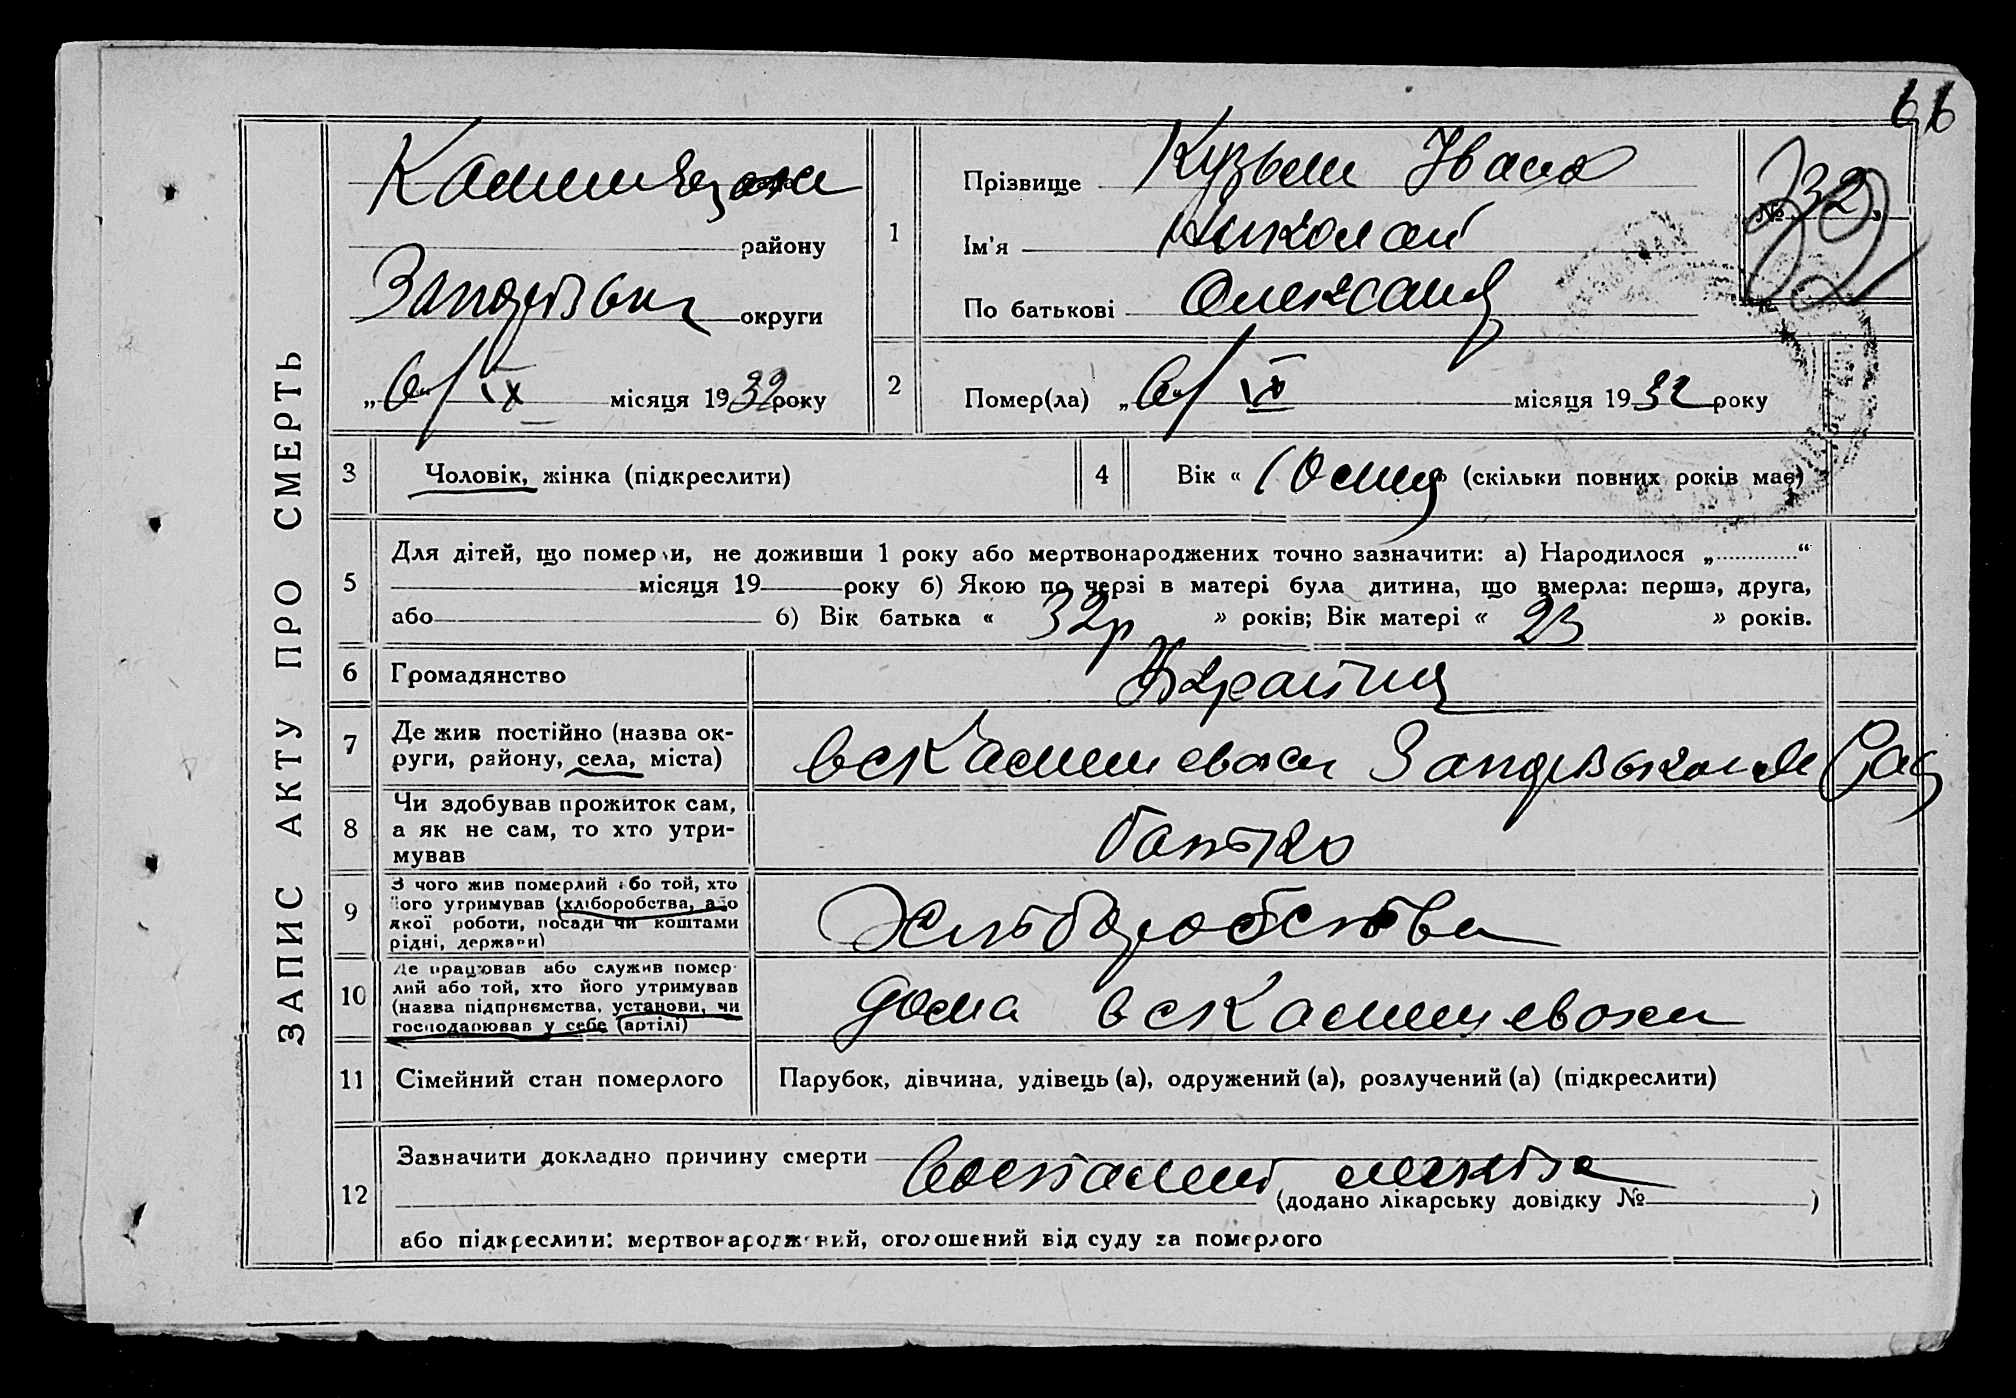 66
ЗАПИС АКТУ ПРО СМЕРТЬ
району
округи
„6/IX місяця 1932 року
1
Прізвище Кузьмин Іванов
Ім'я Николай
По батькові Олександ
№ 32
2
Помер(ла) „6/IX місяця 1932 року
3
Чоловік, жінка (підкреслити)
4
Вік « 10 » (скільки повних років має)
5
Для дітей, що померли, не доживши 1 року або мертвонароджених точно зазначити: а) Народилося „ “
місяця 19 року б) Якою по черзі в матері була дитина, що вмерла: перша, друга,
або б) Вік батька « 32р » років; Вік матері « 23 » років.
6
Громадянство
Україн
7
Де жив постійно (назва ок-
руги, району, села, міста)
8
Чи здобував прожиток сам,
а як не сам, то хто утри-
мував
батько
9
З чого жив померлий або той, хто
його утримував (хліборобства, або
якої роботи, посади чи коштами
рідні, держави)
Хліборобства
10
Де працював або служив помер-
лий або той, хто його утримував
(назва підприємства, установи, чи
господарював у себе (артілі)
дома
11
Сімейний стан померлого
Парубок, дівчина, удівець (а), одружений (а), розлучений (а) (підкреслити)
12
Зазначити докладно причину смерти
(додано лікарську довідку № )
або підкреслити: мертвонароджений, оголошений від суду за померлого